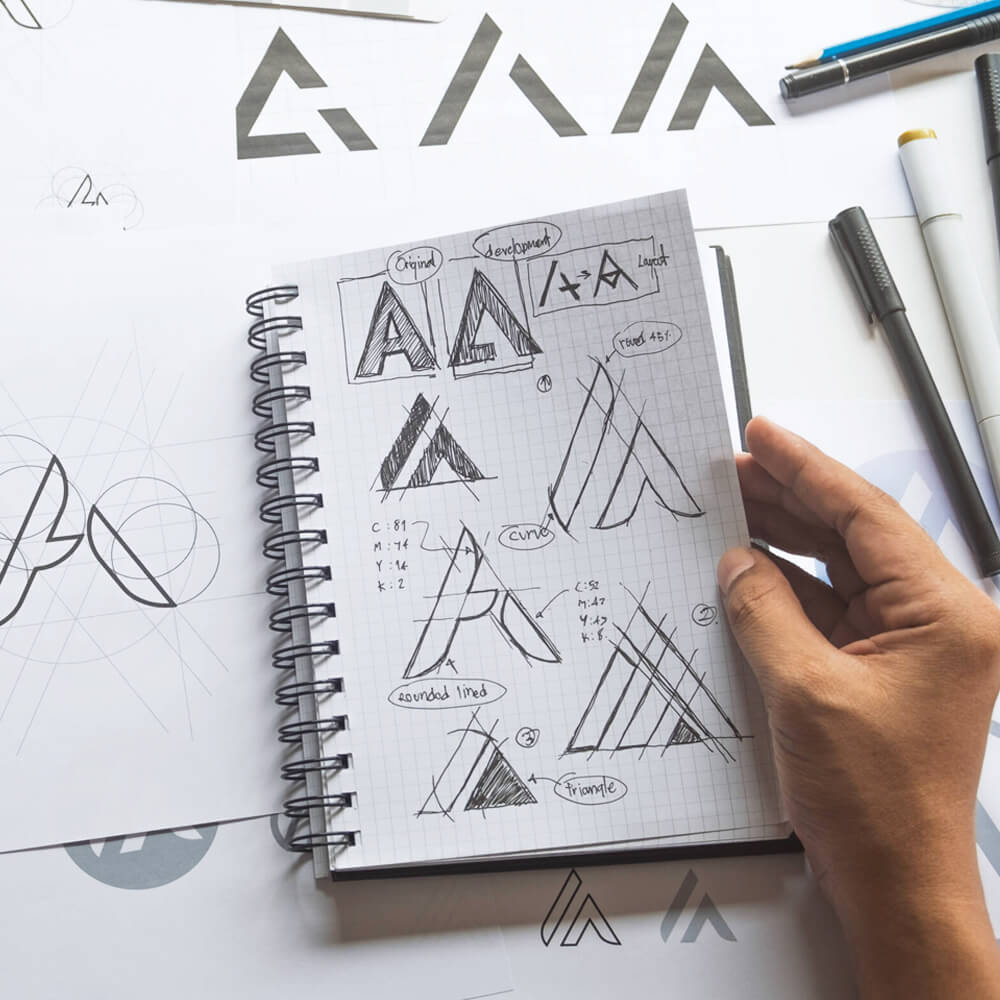 Original
development
Layout
A
round 45%
1
C : 89
M : 74
Y : 94
K : 2
curve
C : 52
M : 47
Y : 47
K : 8
2
rounded lined
3
triangle